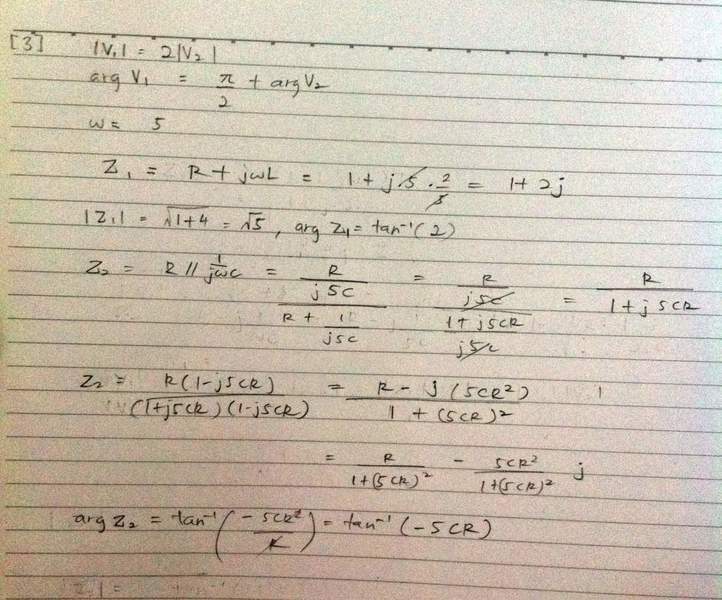 [3] |V₁| = 2|V₂|
arg V₁ = π/2 + arg V₂
ω = 5
Z₁ = R + jωL = 1 + j5 · 2/5 = 1 + 2j
|Z₁| = √(1+4) = √5, arg Z₁ = tan⁻¹(2)
Z₂ = R // 1/jωC = (R/j5C)/(R + 1/j5C) = (R/j5C)/((1+j5CR)/j5C) = R/(1+j5CR)
Z₂ = R(1-j5CR)/((1+j5CR)(1-j5CR)) = (R - j(5CR²))/(1 + (5CR)²)
= R/(1+(5CR)²) - 5CR²/(1+(5CR)²) j
arg Z₂ = tan⁻¹(-5CR²/R) = tan⁻¹(-5CR)